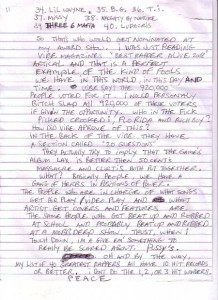 34. Lil Wayne, 35. B.G. 36. T.I.
37. Missy 38. Naughty By Nature
39. Three 6 Mafia 40. Ludacris
So that's who would get nominated at
my award show. I was just reading
Vibe Magazines "Best Rapper Alive 2008"
artical and that is a perfect
example of the kind of fools
we have in this world in this day and
time. Vibe says that 920,000
people voted for it. I would personally
bitch slap all 920,000 of those voters
if given the opportunity. Who in the
picked
How did Vibe approve of this?
In the back of the Vibe they have
a section called "20 Questions"
They actually try to imply that The Game's
album LAX is better then 50 Cent's
Massacre and Curtis both put together.
What? Bright people. We have a
bunch of nerds in positions of power.
The people who are in charge of what songs
get radio play/video play and what
artist get covers and features are
the same people who got beat up and robbed
at school and probably beat up and robbed
at a Mobb Deep show. Trust, when I
touch down, I'm a give em something to
really be scared about. Pussy's.
Oh and by the way,
my list of 40 greatest rappers all have 10 hit records
or better. I put the 1, 2, or 3 hit wonders.
Peace